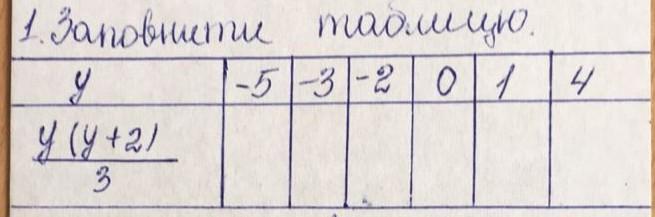 1. Заповнити таблицю.
y -5 -3 -2 0 1 4
y (y+2)
3